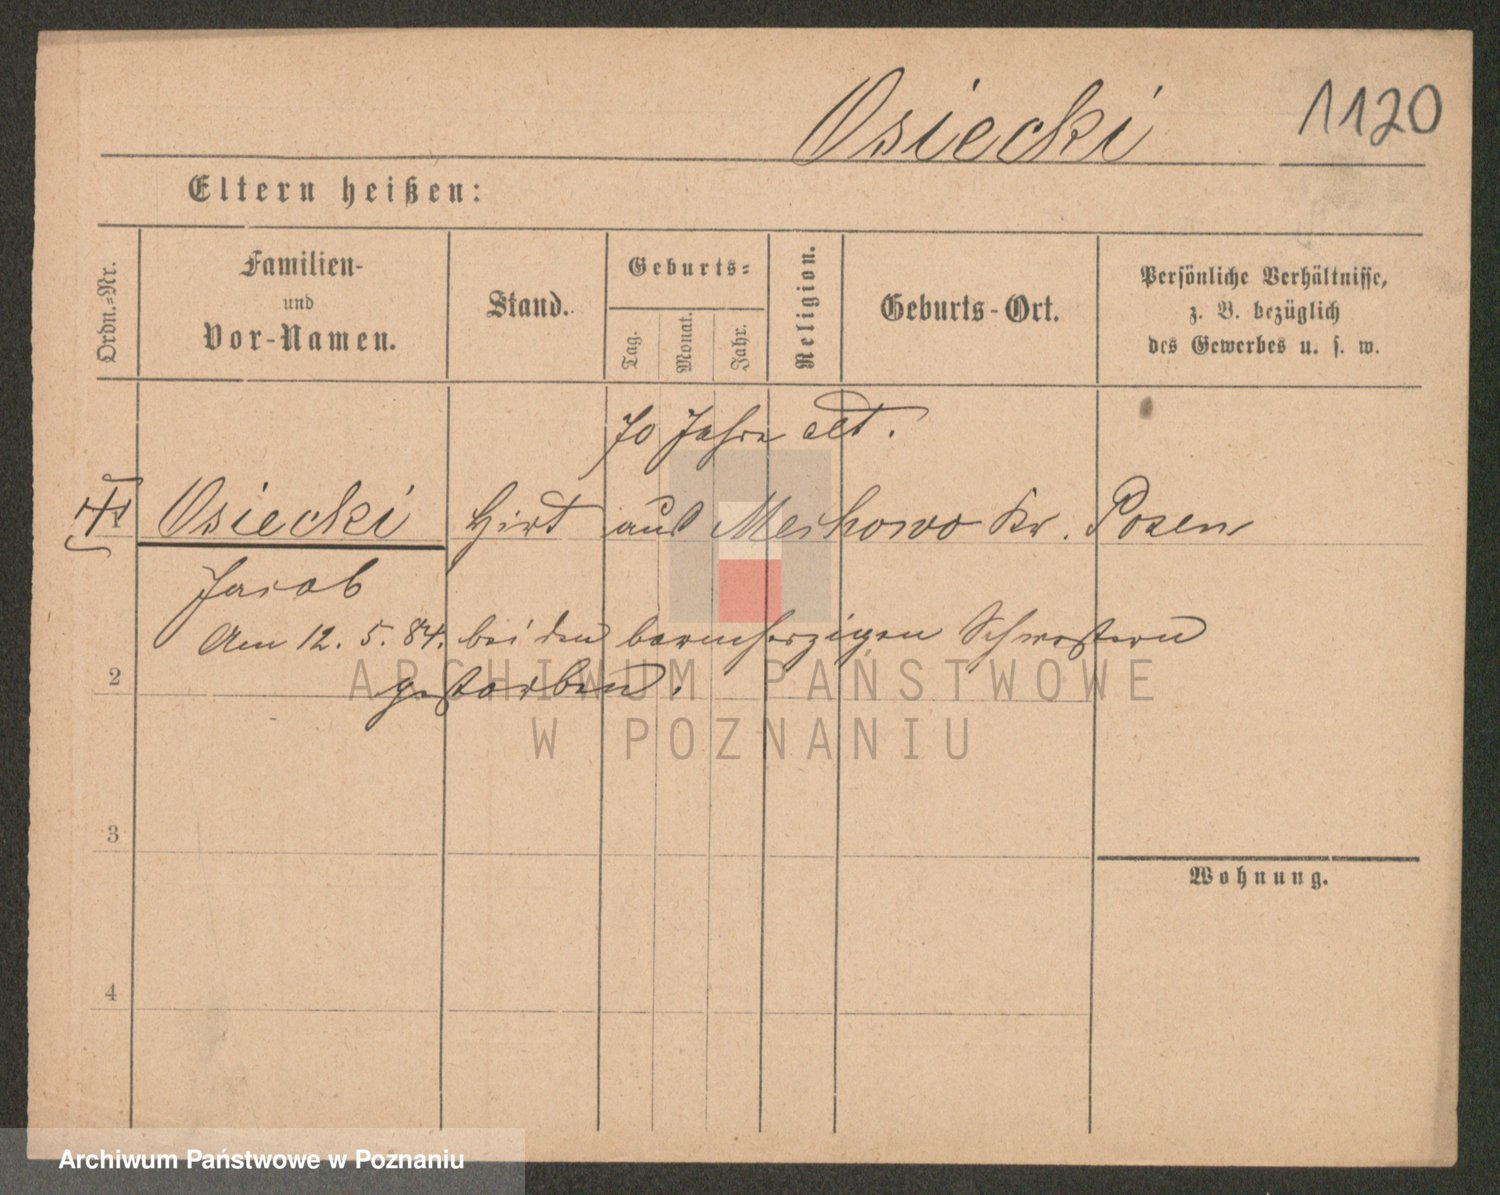 Osiecki 1120
Eltern heißen:
Ordn.-Nr.
Familien-
und
Vor-Namen.
Stand.
Geburts-
Tag.
Monat.
Jahr.
Religion.
Geburts-Ort.
Persönliche Verhältnisse,
z. B. bezüglich
des Gewerbes u. s. w.
70 Jahre alt.
Osiecki Hirt aus Meihowo Kr. Posen
Jacob
Am 12. 5. 84. bei den barmherzigen Schwestern
2
gestorben.
ARCHIWUM PAŃSTWOWE
W POZNANIU
3
Wohnung.
4
Archiwum Państwowe w Poznaniu